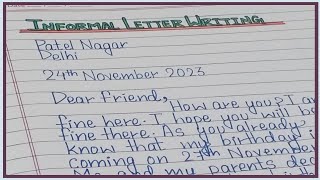 INFORMAL LETTER WRITING
Patel Nagar
Delhi
24th November 2023
Dear Friend,
How are you? I am
fine here. I hope you will be
fine there. As you already
know that my birthday is
coming on 27th November
Me and my parents